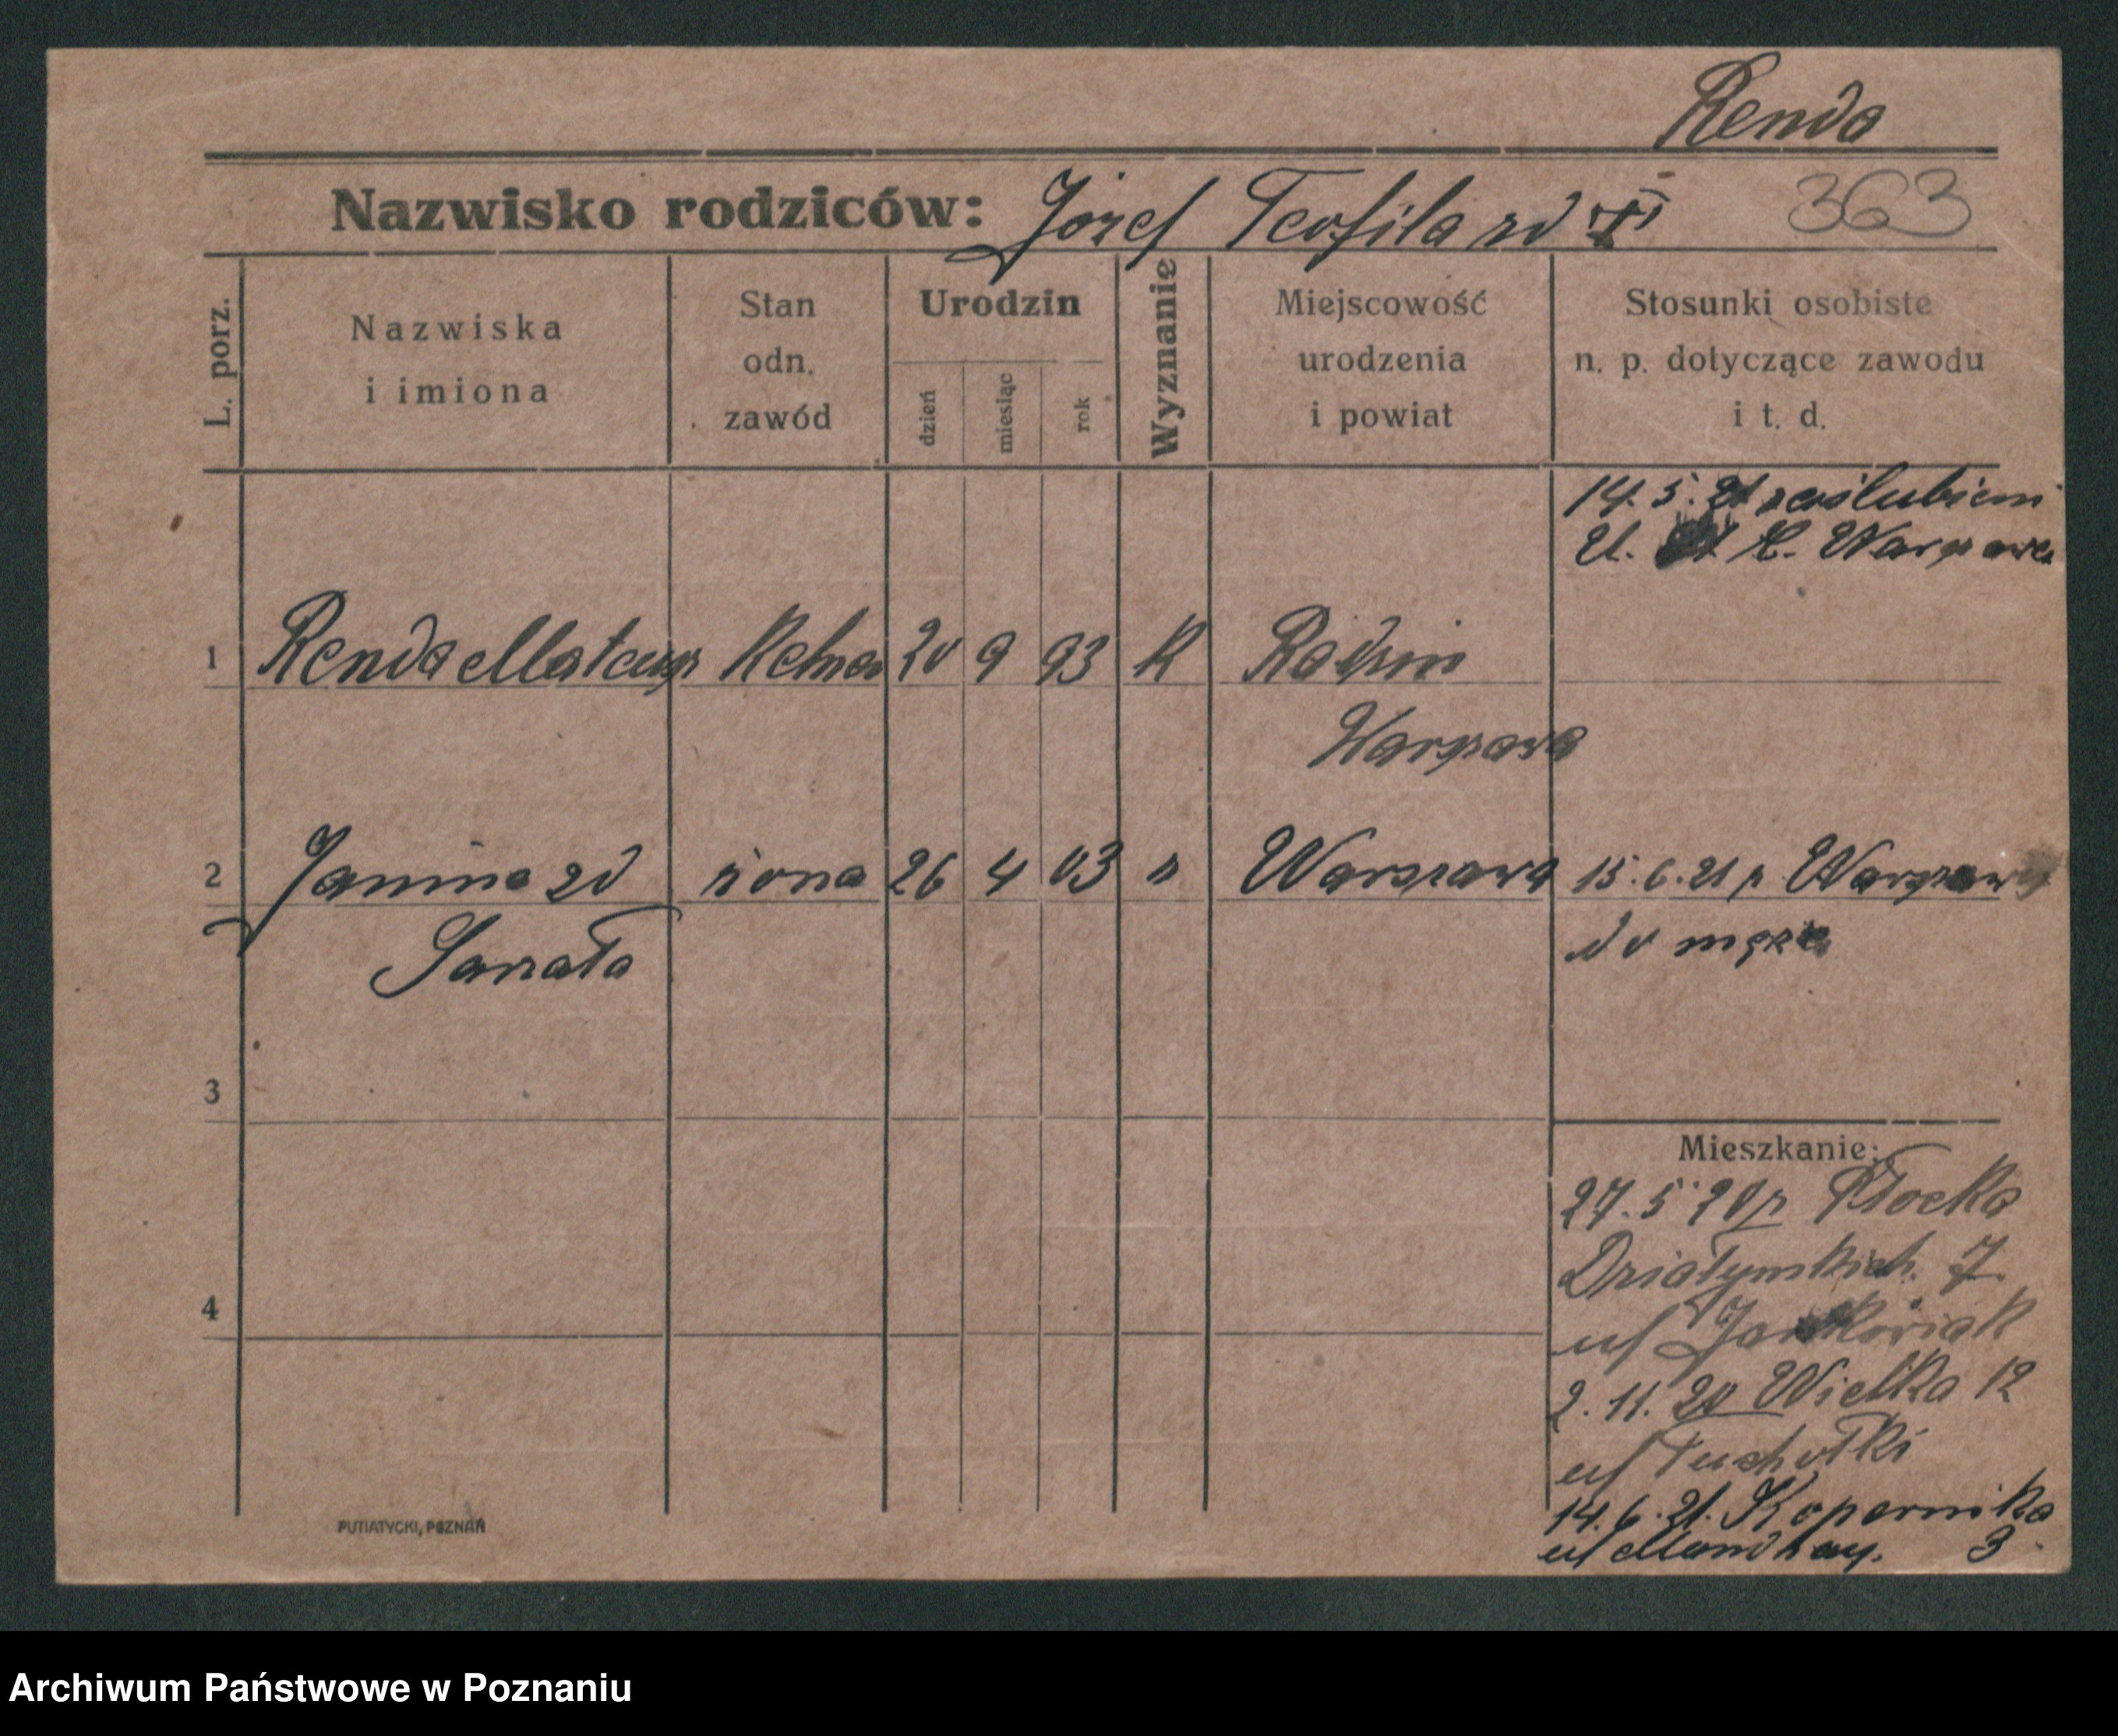 Renda
Nazwisko rodziców: Józef Teofila zd
363
L. porz.
Nazwiska i imiona
Stan odn. zawód
Urodzin
dzień
miesiąc
rok
Wyznanie
Miejscowość urodzenia i powiat
Stosunki osobiste n. p. dotyczące zawodu i t. d.
14. 5. 21 zaślubieni
U. C. Warszawa
1 Renda Mateusz Kelner 20 9 93 K Radzin
Warszawa
2 Janina zd żona 26 4 03 " Warszawa 15. 6. 21 z Warszawy
Sarzała do męża
3
Mieszkanie:
27. 5 20 z Płocka
Działyńskich 7
4
u/ Jankowiak
2. 11. 20 Wielka 12
u/ Tuchołki
14. 6. 21. Kopernika
u/ 3
PUTIATYCKI, POZNAŃ
Archiwum Państwowe w Poznaniu